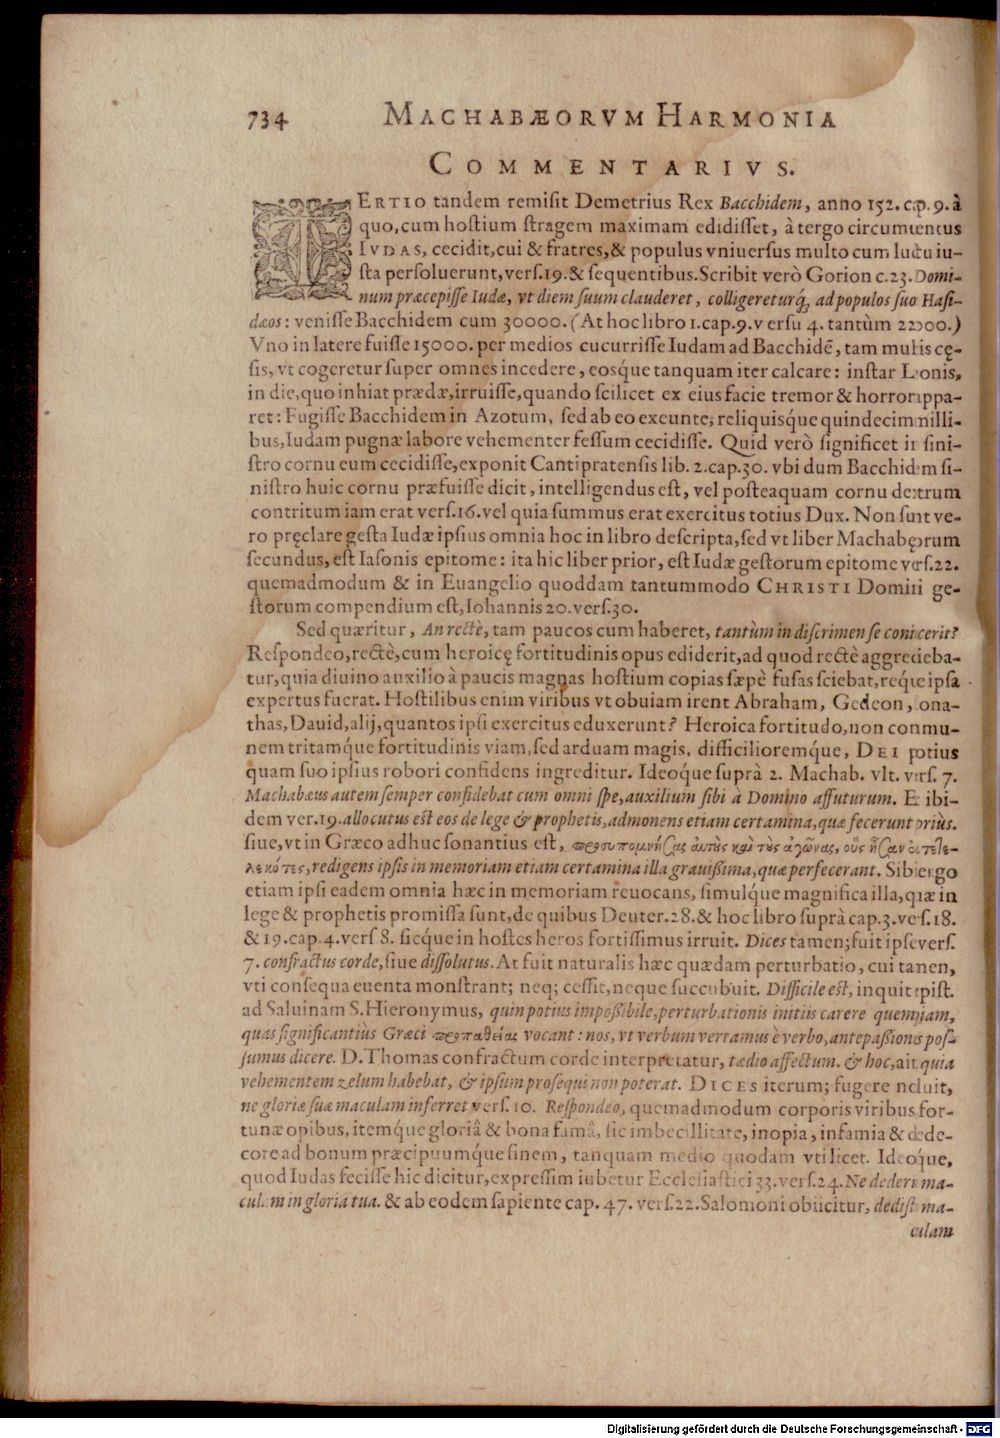 734 MACHABÆORVM HARMONIA
COMMENTARIVS.
TERTIO tandem remiſit Demetrius Rex Bacchidem, anno 152. cap. 9. à
quo, cum hoſtium ſtragem maximam edidiſſet, à tergo circumuentus
IVDAS, cecidit, cui & fratres, & populus vniuerſus multo cum luctu iu-
ſta perſoluerunt, verſ. 19. & ſequentibus. Scribit verò Gorion c. 23. Domi-
num præcepiſſe Iudæ, vt diem ſuum clauderet, colligereturq́; ad populos ſuo Haſi-
dæos: veniſſe Bacchidem cum 30000. (At hoc libro 1. cap. 9. verſu 4. tantùm 22000.)
Vno in latere fuiſſe 15000. per medios cucurriſſe Iudam ad Bacchidẽ, tam multis cę-
ſis, vt cogeretur ſuper omnes incedere, eosque tanquam iter calcare: inſtar Leonis,
in die, quo inhiat prædæ, irruiſſe, quando ſcilicet ex eius facie tremor & horror appa-
ret: Fugiſſe Bacchidem in Azotum, ſed ab eo exeunte, reliquisq́ue quindecim milli-
bus, Iudam pugnæ labore vehementer feſſum cecidiſſe. Quid verò ſignificet in ſini-
ſtro cornu eum cecidiſſe, exponit Cantipratenſis lib. 2. cap. 30. vbi dum Bacchidem ſi-
niſtro huic cornu præfuiſſe dicit, intelligendus eſt, vel poſteaquam cornu dextrum
contritum iam erat verſ. 16. vel quia ſummus erat exercitus totius Dux. Non ſunt ve-
ro pręclare geſta Iudæ ipſius omnia hoc in libro deſcripta, ſed vt liber Machabęorum
ſecundus, eſt Iaſonis epitome: ita hic liber prior, eſt Iudæ geſtorum epitome verſ. 22.
quemadmodum & in Euangelio quoddam tantummodo CHRISTI Domini ge-
ſtorum compendium eſt, Iohannis 20. verſ. 30.
Sed quæritur, An rectè, tam paucos cum haberet, tantùm in diſcrimen ſe coniecerit?
Reſpondeo, rectè, cum heroicę fortitudinis opus ediderit, ad quod rectè aggredieba-
tur, quia diuino auxilio à paucis magnas hoſtium copias ſæpè fuſas ſciebat, reque ipſa
expertus fuerat. Hoſtilibus enim viribus vt obuiam irent Abraham, Gedeon, Iona-
thas, Dauid, alij, quantos ipſi exercitus eduxerunt? Heroica fortitudo, non commu-
nem tritamq́ue fortitudinis viam, ſed arduam magis, difficilioremq́ue, DEI potius
quam ſuo ipſius robori confidens ingreditur. Ideoq́ue ſuprà 2. Machab. vlt. verſ. 7.
Machabæus autem ſemper confidebat cum omni ſpe, auxilium ſibi à Domino affuturum. Et ibi-
dem ver. 19. allocutus eſt eos de lege & prophetis, admonens etiam certamina, quæ fecerunt priùs.
ſiue, vt in Græco adhuc ſonantius eſt, προσυπομνήσας αὐτοὺς καὶ τοὺς ἀγῶνας, οὓς ἦσαν ἐκτετελε-
λεκότες, redigens ipſis in memoriam etiam certamina illa grauiſſima, quæ perfecerant. Sibi ergo
etiam ipſi eadem omnia hæc in memoriam reuocans, ſimulq́ue magnifica illa, quæ in
lege & prophetis promiſſa ſunt, de quibus Deuter. 28. & hoc libro ſuprà cap. 3. verſ. 18.
& 19. cap. 4. verſ 8. ſicq́ue in hoſtes heros fortiſſimus irruit. Dices tamen; fuit ipſe verſ.
7. confractus corde, ſiue diſſolutus. At fuit naturalis hæc quædam perturbatio, cui tamen,
vti conſequa euenta monſtrant; neq; ceſſit, neque ſuccubuit. Difficile eſt, inquit epiſt.
ad Saluinam S. Hieronymus, quin potius impoßibile, perturbationis initiis carere quempiam,
quas ſignificantiùs Græci προπαθείας vocant: nos, vt verbum vertamus è verbo, antepaßiones poſ-
ſumus dicere. D. Thomas confractum corde interpretatur, tædio affectum. & hoc, ait quia
vehementem zelum habebat, & ipſum proſequi non poterat. DICES iterum; fugere noluit,
ne gloriæ ſuæ maculam inferret verſ. 10. Reſpondeo, quemadmodum corporis viribus for-
tunæ opibus, itemq́ue gloriâ & bona famâ, ſic imbecillitate, inopia, infamia & dede-
core ad bonum præcipuumq́ue finem, tanquam medio quodam vti licet. Ideoq́ue,
quod Iudas feciſſe hic dicitur, expreſſim iubetur Eccleſiaſtici 33. verſ. 24. Ne dederis ma-
culam in gloria tua. & ab eodem ſapiente cap. 47. verſ. 22. Salomoni obiicitur, dediſti ma-
culam
Digitalisierung gefördert durch die Deutsche Forschungsgemeinschaft - DFG